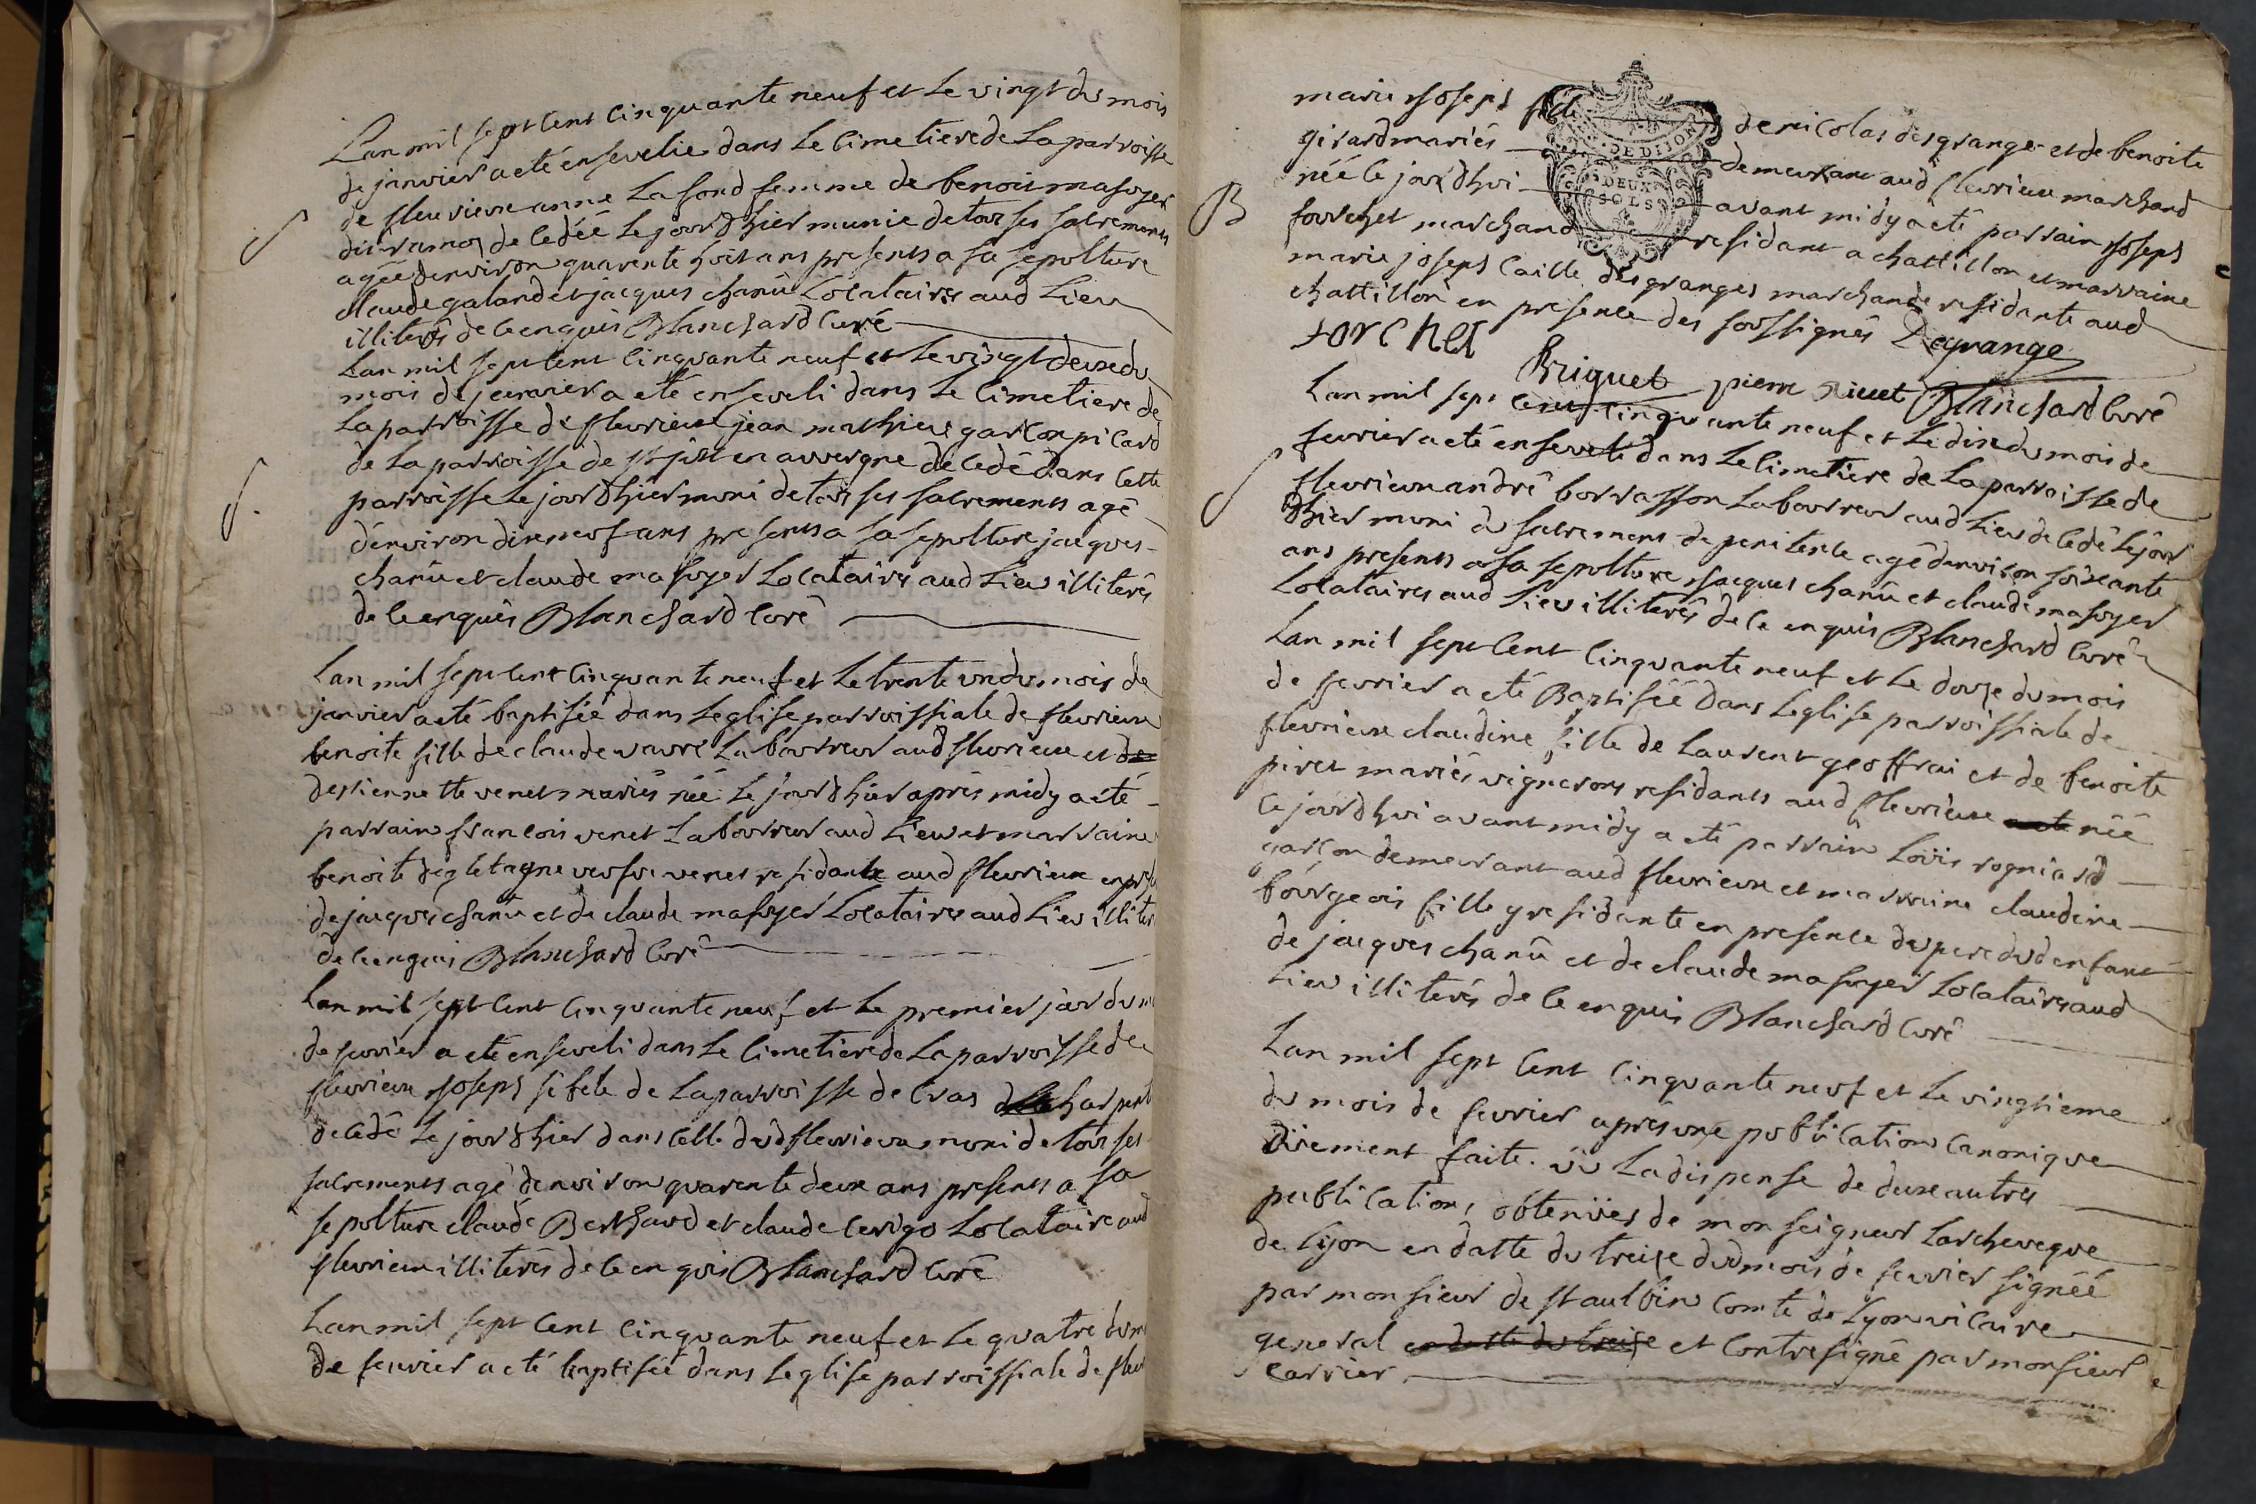 Lan mil sept Cent Cinquante neuf et Le vingt du mois
de janvier a eté ensevelie dans Le Cimetiere de La parroisse
de fleurieux anne La fond femme de benoit masoyer
de Cedéé Le jour dhier munie de tous ses sacrements
agée denviron quarente hoit ans presents a sa sepolture
claude galand et jacques chanû Locataires aud Lieu
illiterés de Ce enquis Blanchard Curé
Lan mil sept Cent Cinquante neuf et Le vingt deux du
mois de janvier a eté enseveli dans Le Cimetiere de
La parroisse de fleurieux jean mathieu garcon picard
de La parroisse de st just en auvergne de Cedé dans Cette
parroisse Le jour dhier muni de tous ses sacrements agé
denviron dixneuf ans presents a sa sepolture jacques
chanû et claude masoyer Locataires aud Lieu illiterés
de Ce enquis Blanchard Curé
Lan mil sept Cent Cinquante neuf et Le trente un du mois de
janvier a eté baptisée dans Leglise parroissiale de fleurieux
benoite fille de claude vavre Laboureur aud fleurieux et de
destiennette venet mariés née Le jour dhier après midy a eté
parrain francois venet Laboureur aud Lieu et marraine
benoite venet residante aud fleurieux en
de jacques chanû et de claude masoyer Locataires aud Lieu illiter
de Ce enquis Blanchard Curé
Lan mil sept Cent Cinquante neuf et Le premier jour du m
de fevrier a eté enseveli dans Le Cimetiere de La parroisse de
fleurieux joseph sibele de La parroisse de Cras
de Cedé Le jour dhier dans Celle dud fleurieux muni de tous ses
sacrements agé denviron quarente deux ans presents a sa
sepolture claude Berthard et claude Cerigo Locataire aud
fleurieux illiterés de Ce enquis Blanchard Curé
Lan mil sept Cent Cinquante neuf et Le quatre du m
de fevrier a eté baptisée dans Leglise parroissiale de fleu
marie joseph fille de nicolas desgrange et de benoite
girard mariés demeurant aud fleurieux marchand
née Le jour dhui avant midy a eté parrain joseph
forchet marchand residant a chattillon et marraine
marie joseph Caille desgranges marchande residante aud
chattillon en presence des soussignés Degrange
forchet
Briquet pierre Blanchard Curé
Lan mil sept Cent Cinquante neuf et Le dix du mois de
fevrier a eté enseveli dans Le Cimetiere de La parroisse de
fleurieux andré borrasson Laboureur aud Lieu de Cedé Le jour
dhier muni du sacrement de penitence agé denviron soixante
ans presents a sa sepolture jacques chanû et claude masoyer
Locataires aud Lieu illiterés de Ce enquis Blanchard Curé
Lan mil sept Cent Cinquante neuf et Le douze du mois
de fevrier a eté Baptisée dans Leglise parroissiale de
fleurieux claudine fille de Laurent geoffrai et de benoite
piret mariés vignerons residants aud fleurieux née
Ce jourdhui avant midy a eté parrain Loüis rogniard
garçon demeurant aud fleurieux et marraine claudine
bourgeois fille y residante en presence du pere dud enfant
de jacques chanû et de claude masoyer Locataires aud
Lieu illiterés de Ce enquis Blanchard Curé
Lan mil sept Cent Cinquante neuf et Le vingtieme
du mois de fevrier après une publication Canonique
düement faite. vû La dispense de deux autres
publications obtenües de monseigneur Larcheveque
de Lyon en datte du treize dud mois de fevrier signéé
par monsieur de st aulbin Comte de Lyon vicaire
general en datte du treize et Contresigné par monsieur
Carrier
DE DIJON
DEUX
SOLS
B